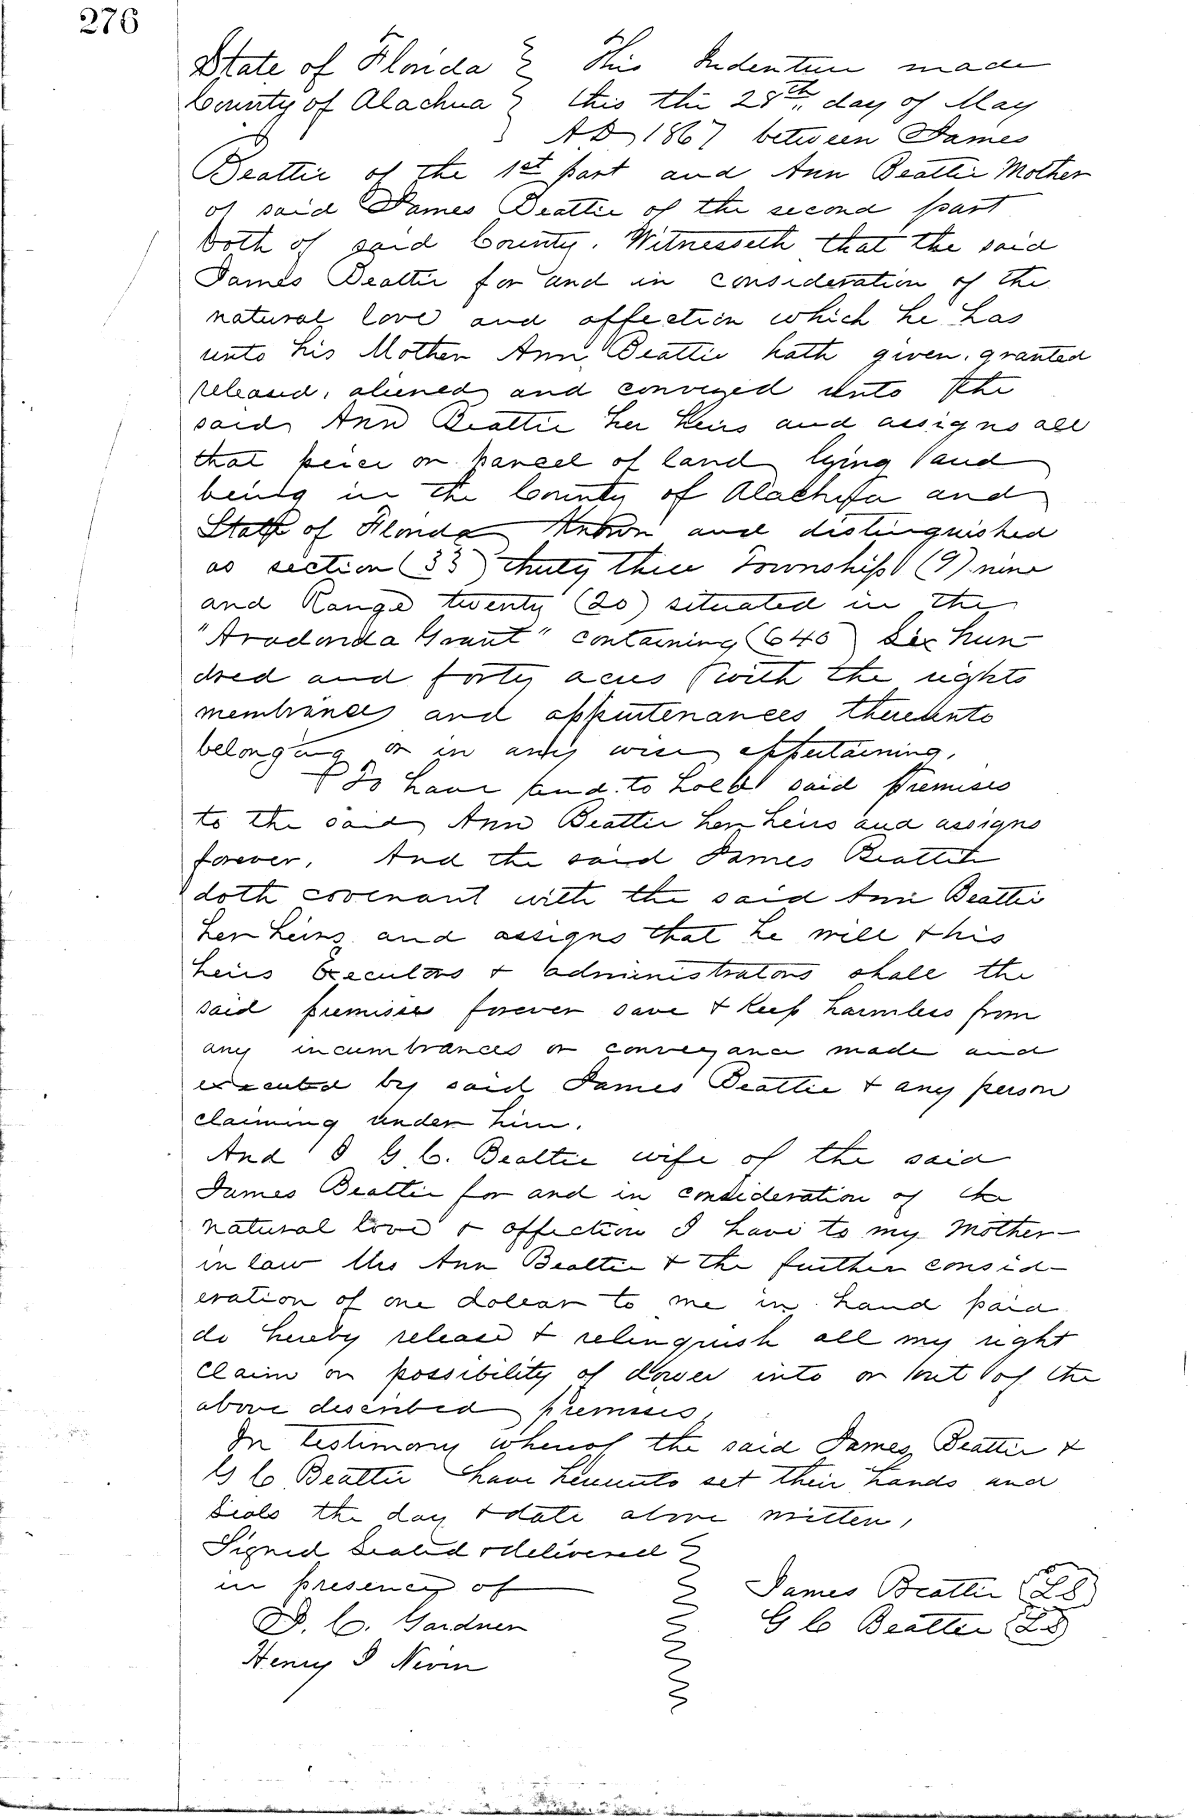 276
State of Florida } This Indenture made
County of Alachua } this the 28th day of May
} A.D 1867 between James
Beattie of the 1st part and Ann Beattie Mother
of said James Beattie of the second part
both of said County. Witnesseth that the said
James Beattie for and in consideration of the
natural love and affection which he has
unto his Mother Ann Beattie hath given, granted
released, aliened and conveyed unto the
said Ann Beattie her heirs and assigns all
that peice or parcel of land lying and
being in the County of Alachua and
State of Florida Known and distinguished
as section (33) thirty three Township (9) nine
and Range twenty (20) situated in the
"Aradonda Grant" containing (640) Six hun-
dred and forty acres with the rights
membrances and appurtenances thereunto
belonging or in any wise appertaining.
To have and to hold said premises
to the said Ann Beattie her heirs and assigns
forever. And the said James Beattie
doth covenant with the said Ann Beattie
her heirs and assigns that he will & his
heirs Executors & administrators shall the
said premises forever save & Keep harmless from
any incumbrances or conveyance made and
executed by said James Beattie & any person
claiming under him.
And I G. C. Beattie wife of the said
James Beattie for and in consideration of the
natural love & affection I have to my Mother-
in law Mrs Ann Beattie & the further consid-
eration of one dollar to me in hand paid
do hereby release & relinquish all my right
claim or possibility of dower into or out of the
above described premises,
In testimony whereof the said James Beattie &
G C Beattie have hereunto set their hands and
Seals the day & date above written,
Signed Sealed & delivered
in presence of
James Beattie (LS)
G C Beattie (LS)
C. Gardner
Henry Nevin